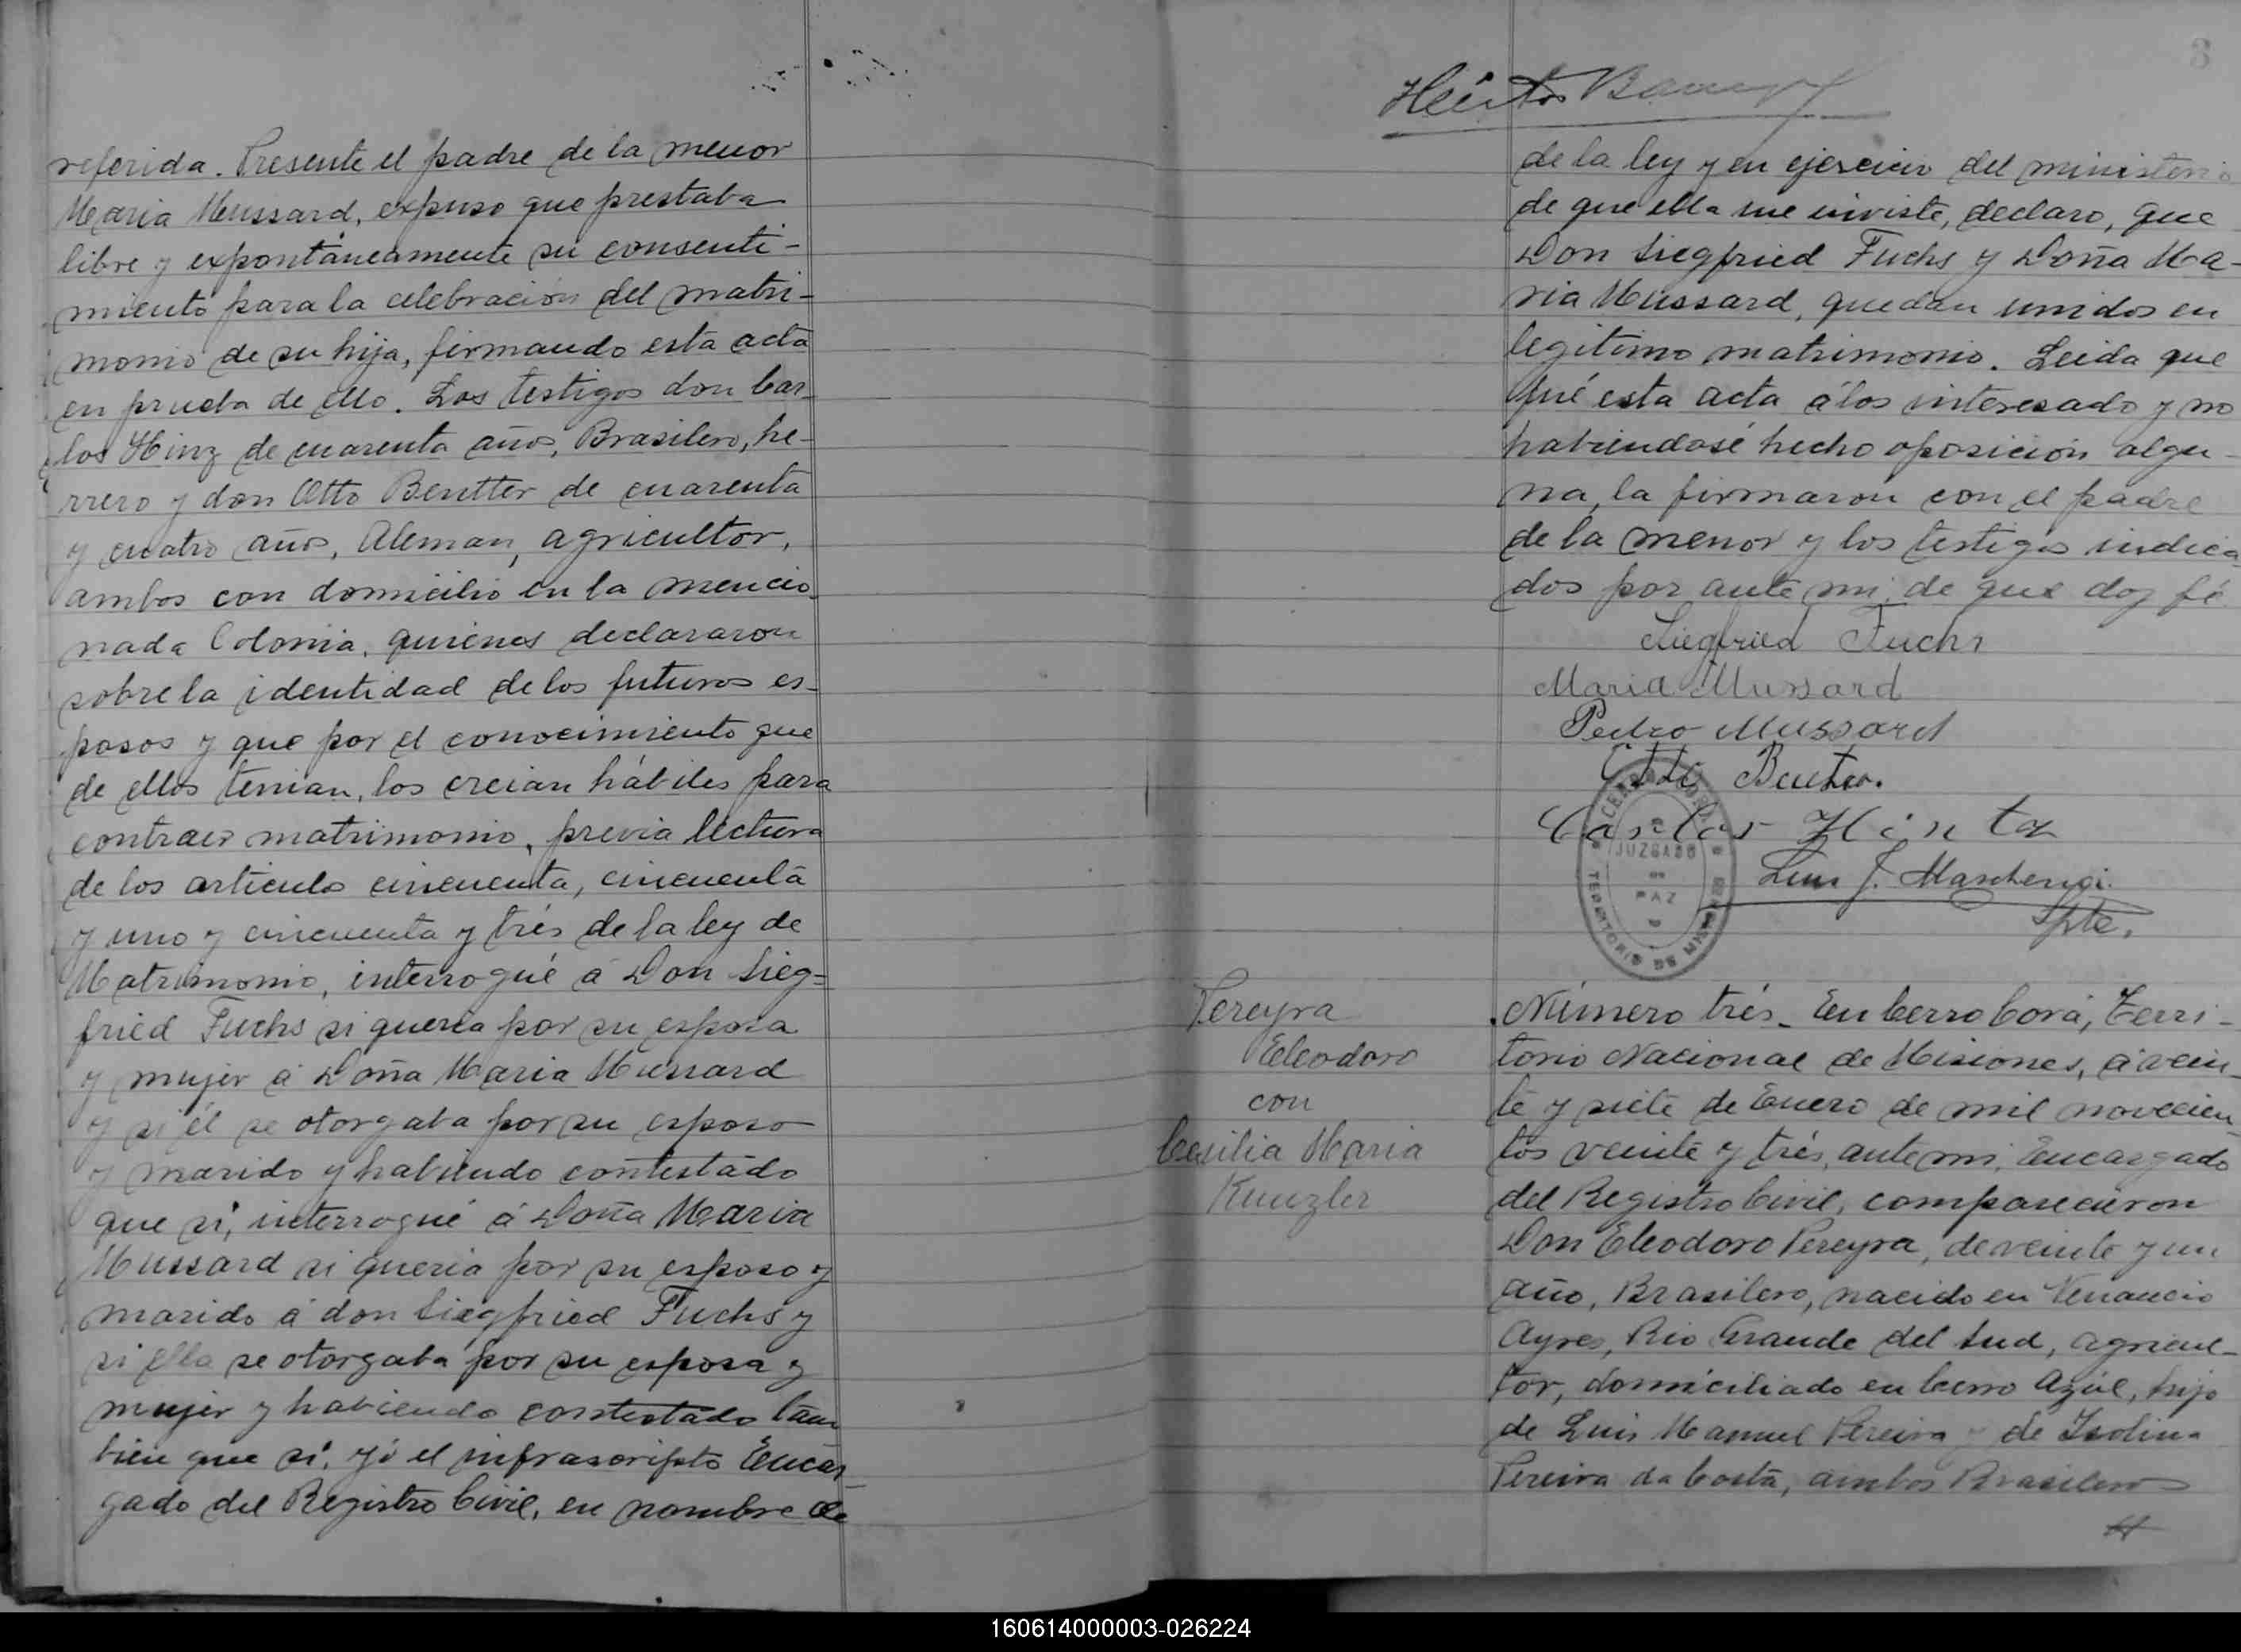 referida. Presente el padre de la menor
Maria Mussard, expuso que prestaba
libre y expontáneamente su consenti-
miento para la celebración del matri-
monio de su hija, firmando esta acta
en prueba de ello. Los testigos don Car-
los Hinz de cuarenta años, Brasilero, he-
rrero y don Otto Beutter de cuarenta
y cuatro años, Aleman, agricultor,
ambos con domicilio en la mencio-
nada Colonia, quienes declararon
sobre la identidad de los futuros es-
posos y que por el conocimiento que
de ellos tenian, los creian hábiles para
contraer matrimonio, previa lectura
de los articulos cincuenta, cincuenta
y uno y cincuenta y trés de la ley de
Matrimonio, interrogué á Don Sieg=
fried Fuchs si queria por su esposa
y mujer á Doña Maria Mussard
y si él se otorgaba por su esposo
y marido y habiendo contestado
que si, interrogué á Doña Maria
Mussard si queria por su esposo y
marido á don Siegfried Fuchs y
si ella se otorgaba por su esposa y
mujer y habiendo contestado tam
bien que si, yó el infrascripto Encar
gado del Registro Civil, en nombre de
3
Héctor
de la ley y en ejercicio del ministerio
de que ella me inviste, declaro, que
Don Siegfried Fuchs y Doña Ma-
ria Mussard, quedan unidos en
legitimo matrimonio. Leida que
fué esta acta á los interesado y no
habiendosé hecho oposición algu-
na, la firmaron con el padre
de la menor y los testigos indica
dos por ante mi, de que doy fé
Siegfried Fuchs
Maria Mussard
Pedro Mussard
Otto Beutter.
Carlos Hintz
Luis J. Marchengi.
Spte.
CERRO CORÁ
JUZGADO
DE
PAZ
TERRITORIO DE MISIONES
Pereyra
Eleodoro
con
Cecilia Maria
Kunzler
Número trés. En Cerro Corá, Terri-
torio Nacional de Misiones, á vein-
te y siete de Enero de mil novecien
tos veinte y trés, ante mi, Encargado
del Registro Civil, comparecieron
Don Eleodoro Pereyra, de veinte y un
año, Brasilero, nacido en Venancio
Ayres, Rio Grande del Sud, agricul-
tor, domiciliado en Cerro Azúl, hijo
de Luis Manuel Pereira y de Isolina
Pereira da Costa, ambos Brasileros
160614000003-026224